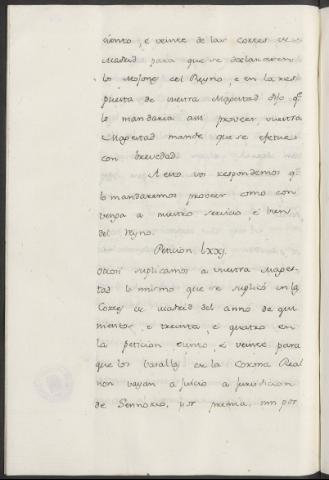 ciento, e veinte de las cortes de
Madrid para que se declarasen
los Mesones del Reyno, e en la res
puesta de vuestra Magestad dijo qᵉ
lo mandaria assi proveer vuestra
Magestad mande que se efetue
con brevedad.
A esto vos respondemos qᵉ
lo mandaremos proveer como con
venga a nuestro servicio, e bien
del Reyno.
Peticion lxxj.
Otrosi suplicamos a vuestra Mages-
tad lo mismo que se suplicó en las
Cortes de Madrid del anno de qui
nientos, e treinta, e quatro en
la peticion ciento, e veinte para
que los vasallos de la Corona Real
non vayan a juicio a jurisdicion
de Sennorio, por premia, nin por